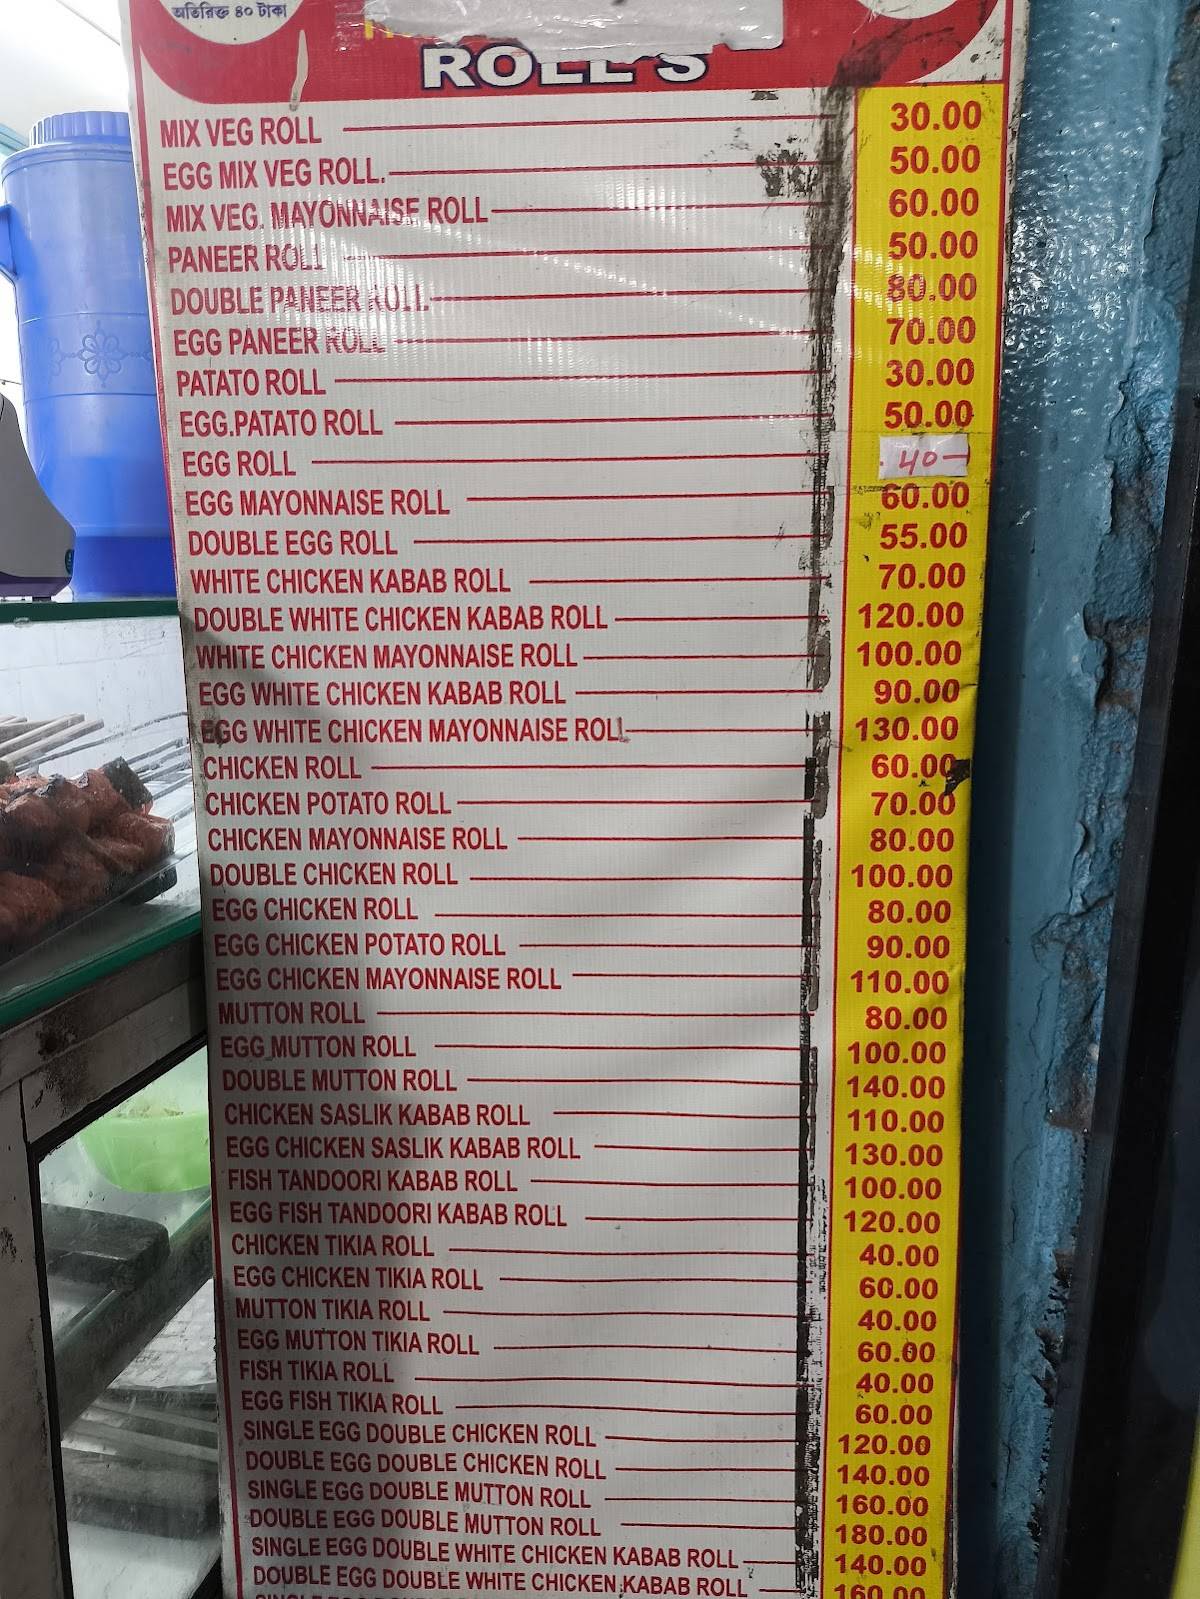 অতিরিক্ত ৪০ টাকা
ROLL'S
MIX VEG ROLL 30.00
EGG MIX VEG ROLL. 50.00
MIX VEG. MAYONNAISE ROLL 60.00
PANEER ROLL 50.00
DOUBLE PANEER ROLL 80.00
EGG PANEER ROLL 70.00
PATATO ROLL 30.00
EGG.PATATO ROLL 50.00
EGG ROLL 40-
EGG MAYONNAISE ROLL 60.00
DOUBLE EGG ROLL 55.00
WHITE CHICKEN KABAB ROLL 70.00
DOUBLE WHITE CHICKEN KABAB ROLL 120.00
WHITE CHICKEN MAYONNAISE ROLL 100.00
EGG WHITE CHICKEN KABAB ROLL 90.00
EGG WHITE CHICKEN MAYONNAISE ROLL 130.00
CHICKEN ROLL 60.00
CHICKEN POTATO ROLL 70.00
CHICKEN MAYONNAISE ROLL 80.00
DOUBLE CHICKEN ROLL 100.00
EGG CHICKEN ROLL 80.00
EGG CHICKEN POTATO ROLL 90.00
EGG CHICKEN MAYONNAISE ROLL 110.00
MUTTON ROLL 80.00
EGG MUTTON ROLL 100.00
DOUBLE MUTTON ROLL 140.00
CHICKEN SASLIK KABAB ROLL 110.00
EGG CHICKEN SASLIK KABAB ROLL 130.00
FISH TANDOORI KABAB ROLL 100.00
EGG FISH TANDOORI KABAB ROLL 120.00
CHICKEN TIKIA ROLL 40.00
EGG CHICKEN TIKIA ROLL 60.00
MUTTON TIKIA ROLL 40.00
EGG MUTTON TIKIA ROLL 60.00
FISH TIKIA ROLL 40.00
EGG FISH TIKIA ROLL 60.00
SINGLE EGG DOUBLE CHICKEN ROLL 120.00
DOUBLE EGG DOUBLE CHICKEN ROLL 140.00
SINGLE EGG DOUBLE MUTTON ROLL 160.00
DOUBLE EGG DOUBLE MUTTON ROLL 180.00
SINGLE EGG DOUBLE WHITE CHICKEN KABAB ROLL 140.00
DOUBLE EGG DOUBLE WHITE CHICKEN KABAB ROLL 160.00